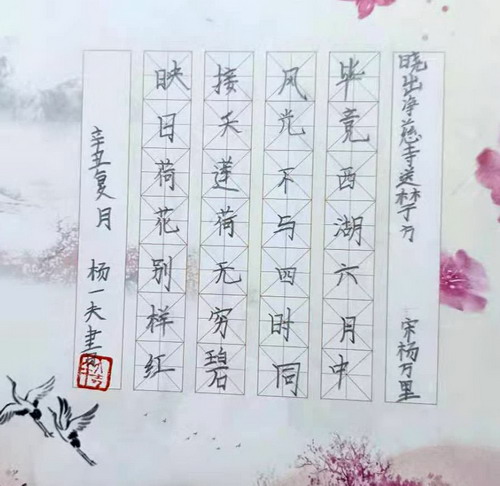 晓出净慈寺送林子方 宋杨万里
毕竟西湖六月中
风光不与四时同
接天莲荷无穷碧
映日荷花别样红
辛丑夏月 杨一夫書